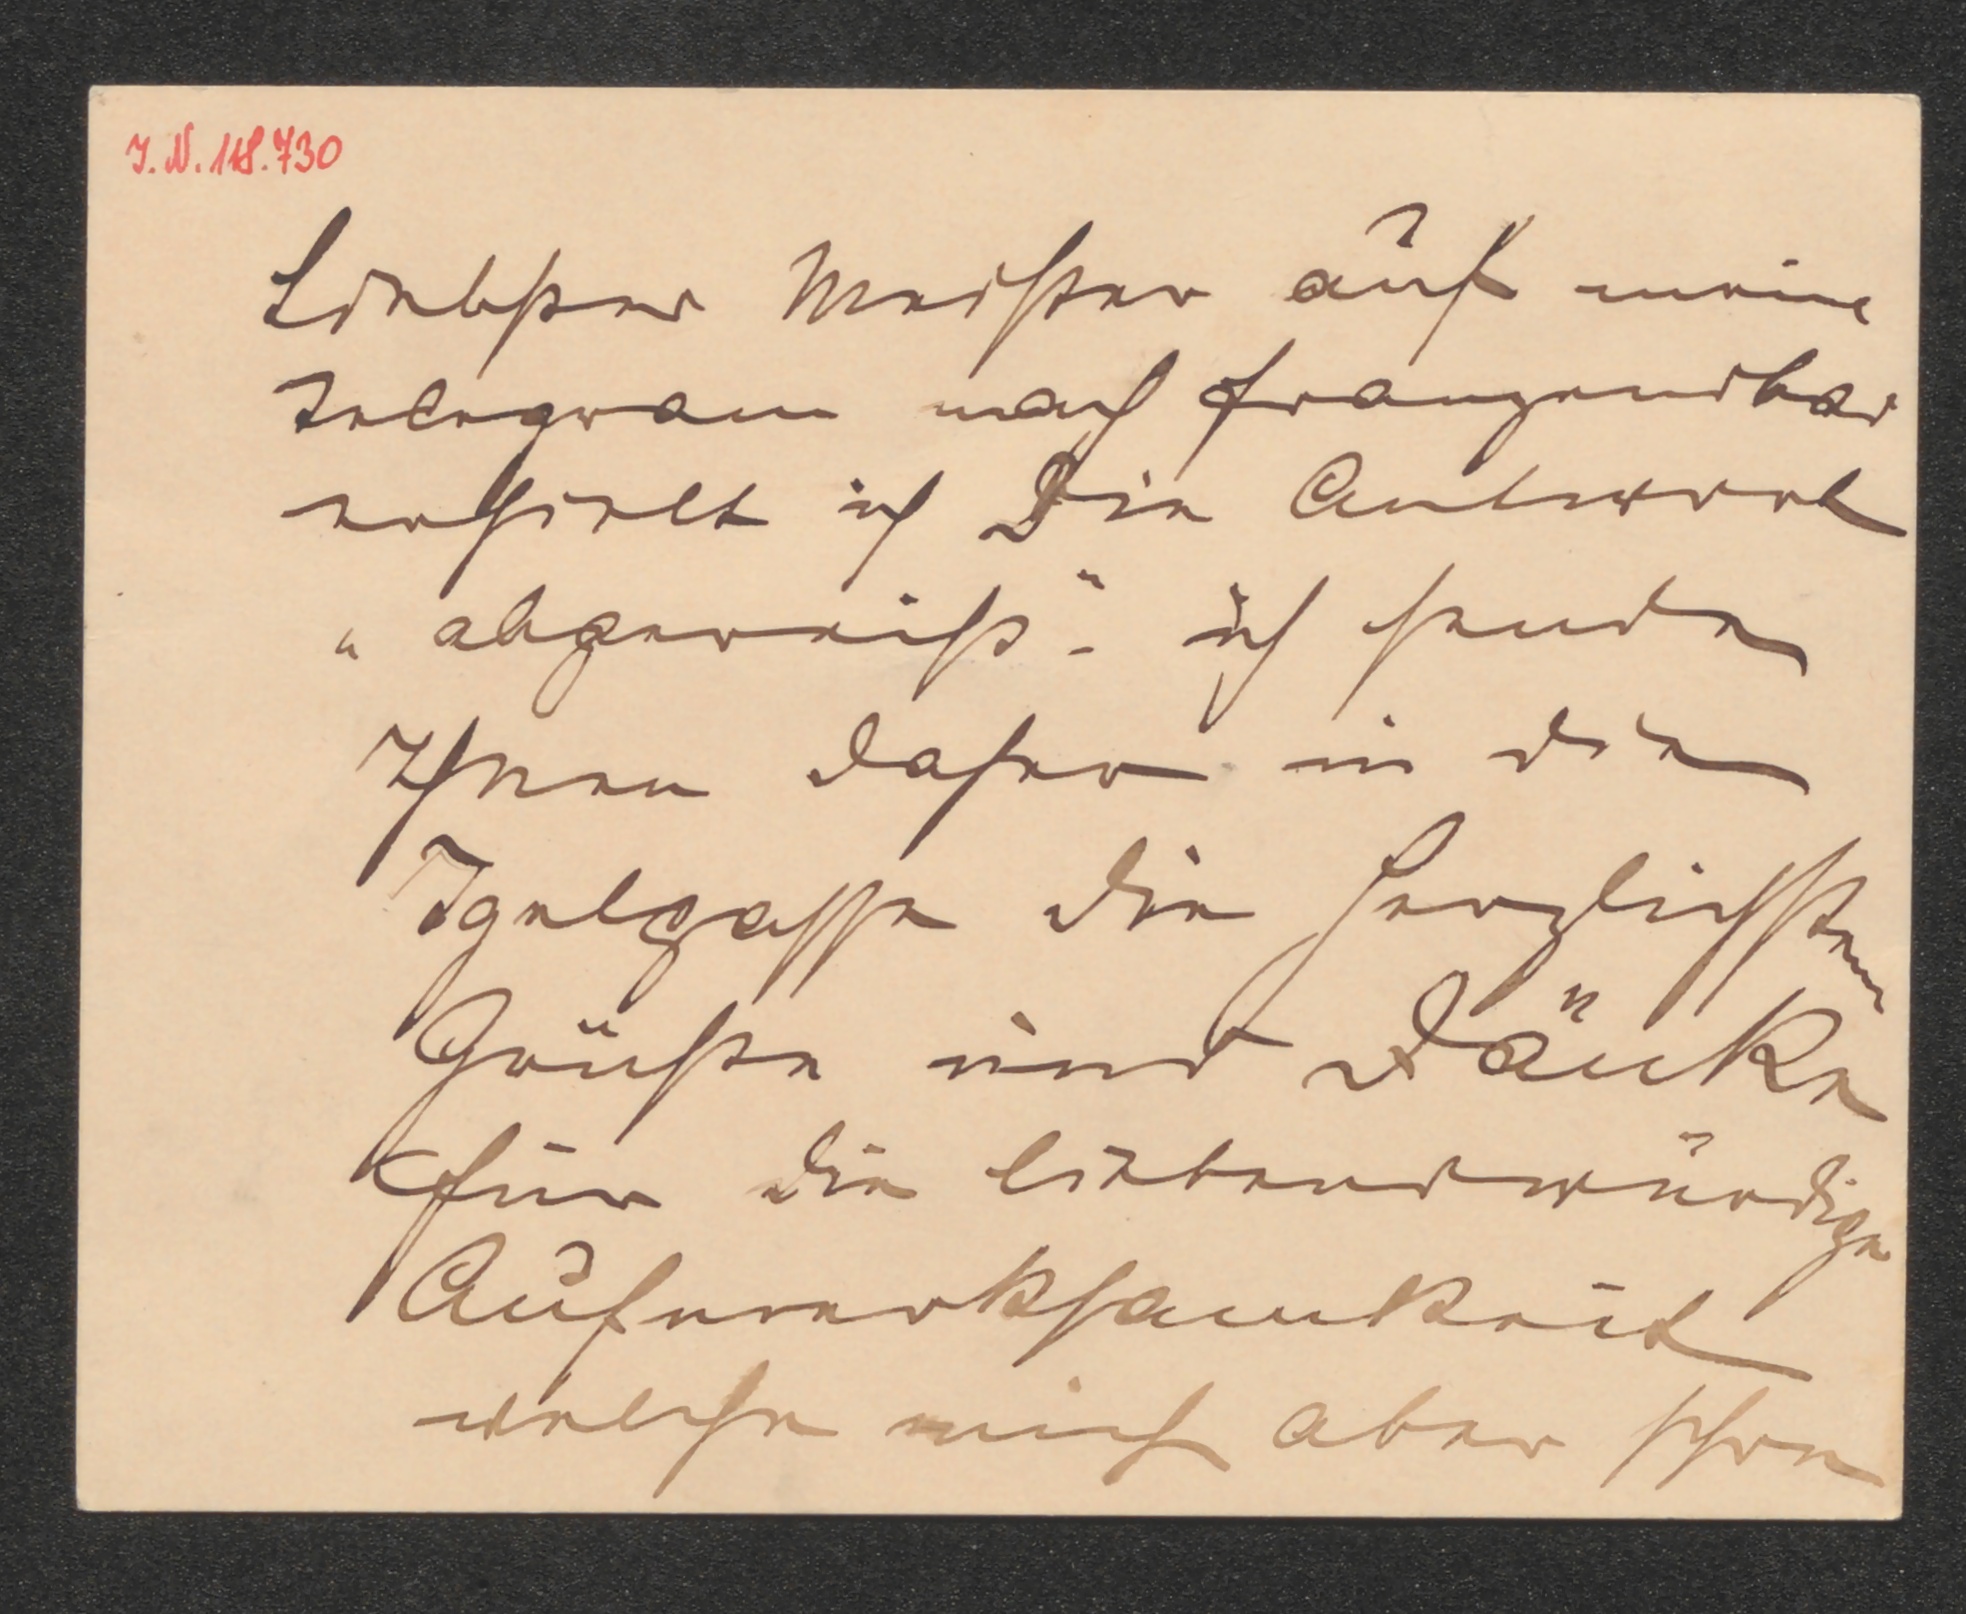 I. N. 118.730
Liebster Meister auf meine
Telegram nach Franzensbad
erhielt ich Die Antwort
„abgereist“ - ich sende
Ihnen daher in die
Igelgasse die herzlichsten
Grüße und Dänke
für die liebenswürdige
Aufmerksamkeit
welche mich aber schon